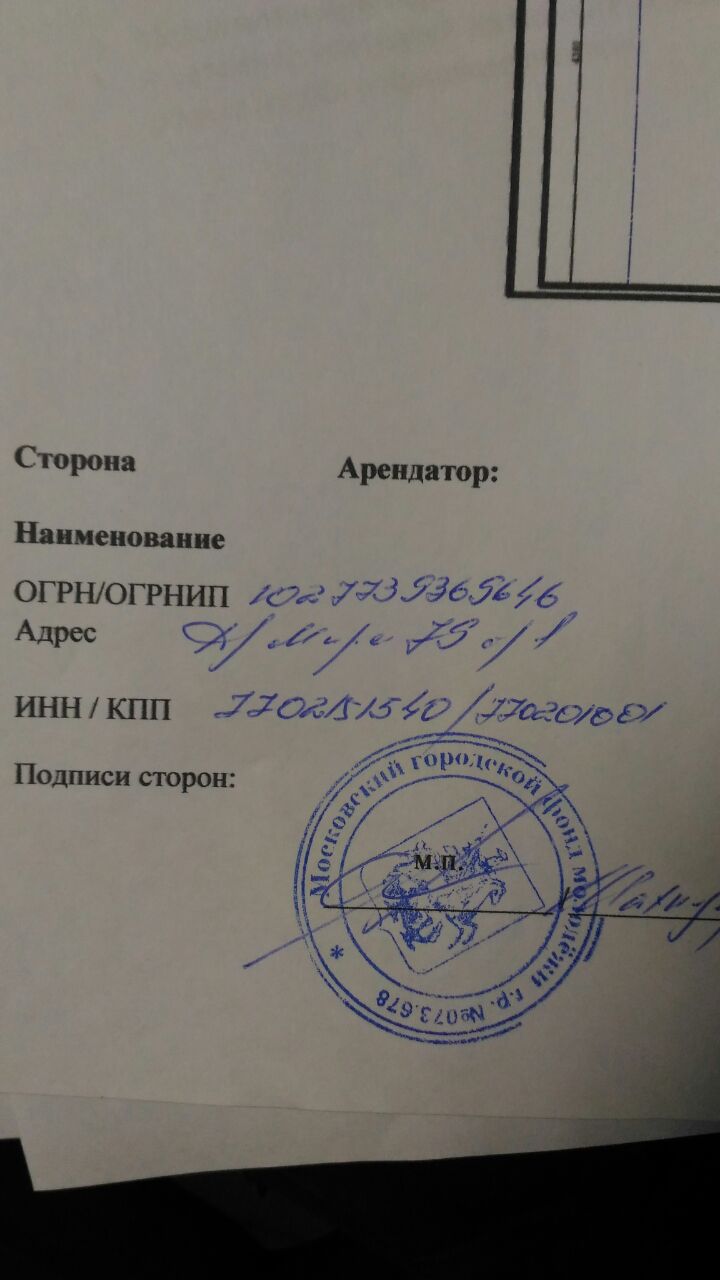 Сторона Арендатор:
Наименование
ОГРН/ОГРНИП 1027739369646
Адрес Мира 79
ИНН / КПП 7702151540/770201001
Подписи сторон:
Московский городской фонд молодёжи г.р. №073.678 *
М.П.